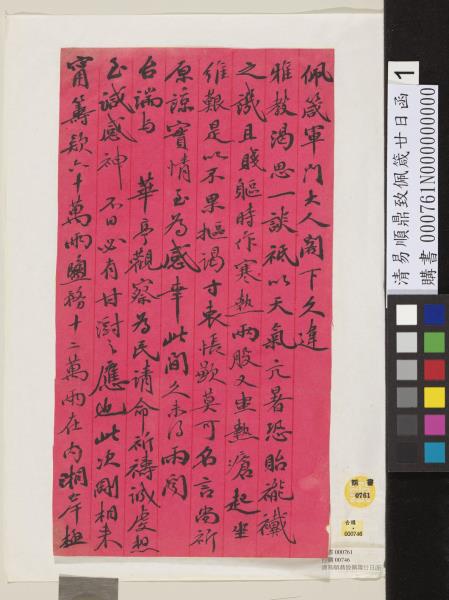 佩箴軍門大人閣下久違
雅教渴思一談祇以天氣亢暑恐貽褦襶
之譏且賤軀時作寒熱兩股又患熱瘡起坐
維艱是以不果摳謁寸衷悵歉莫可名言尚祈
原諒實情至為感幸此間久未得雨閱
台端與華亭觀察為民請命祈禱誠虔想
至誠感神不日必有甘澍之應也此次剛相來
甯籌款六十萬兩鹽務十二萬兩在內湘岸極
1
清易順鼎致佩箴廿日函
購書 000761N000000000
購書
0761
台購
000746